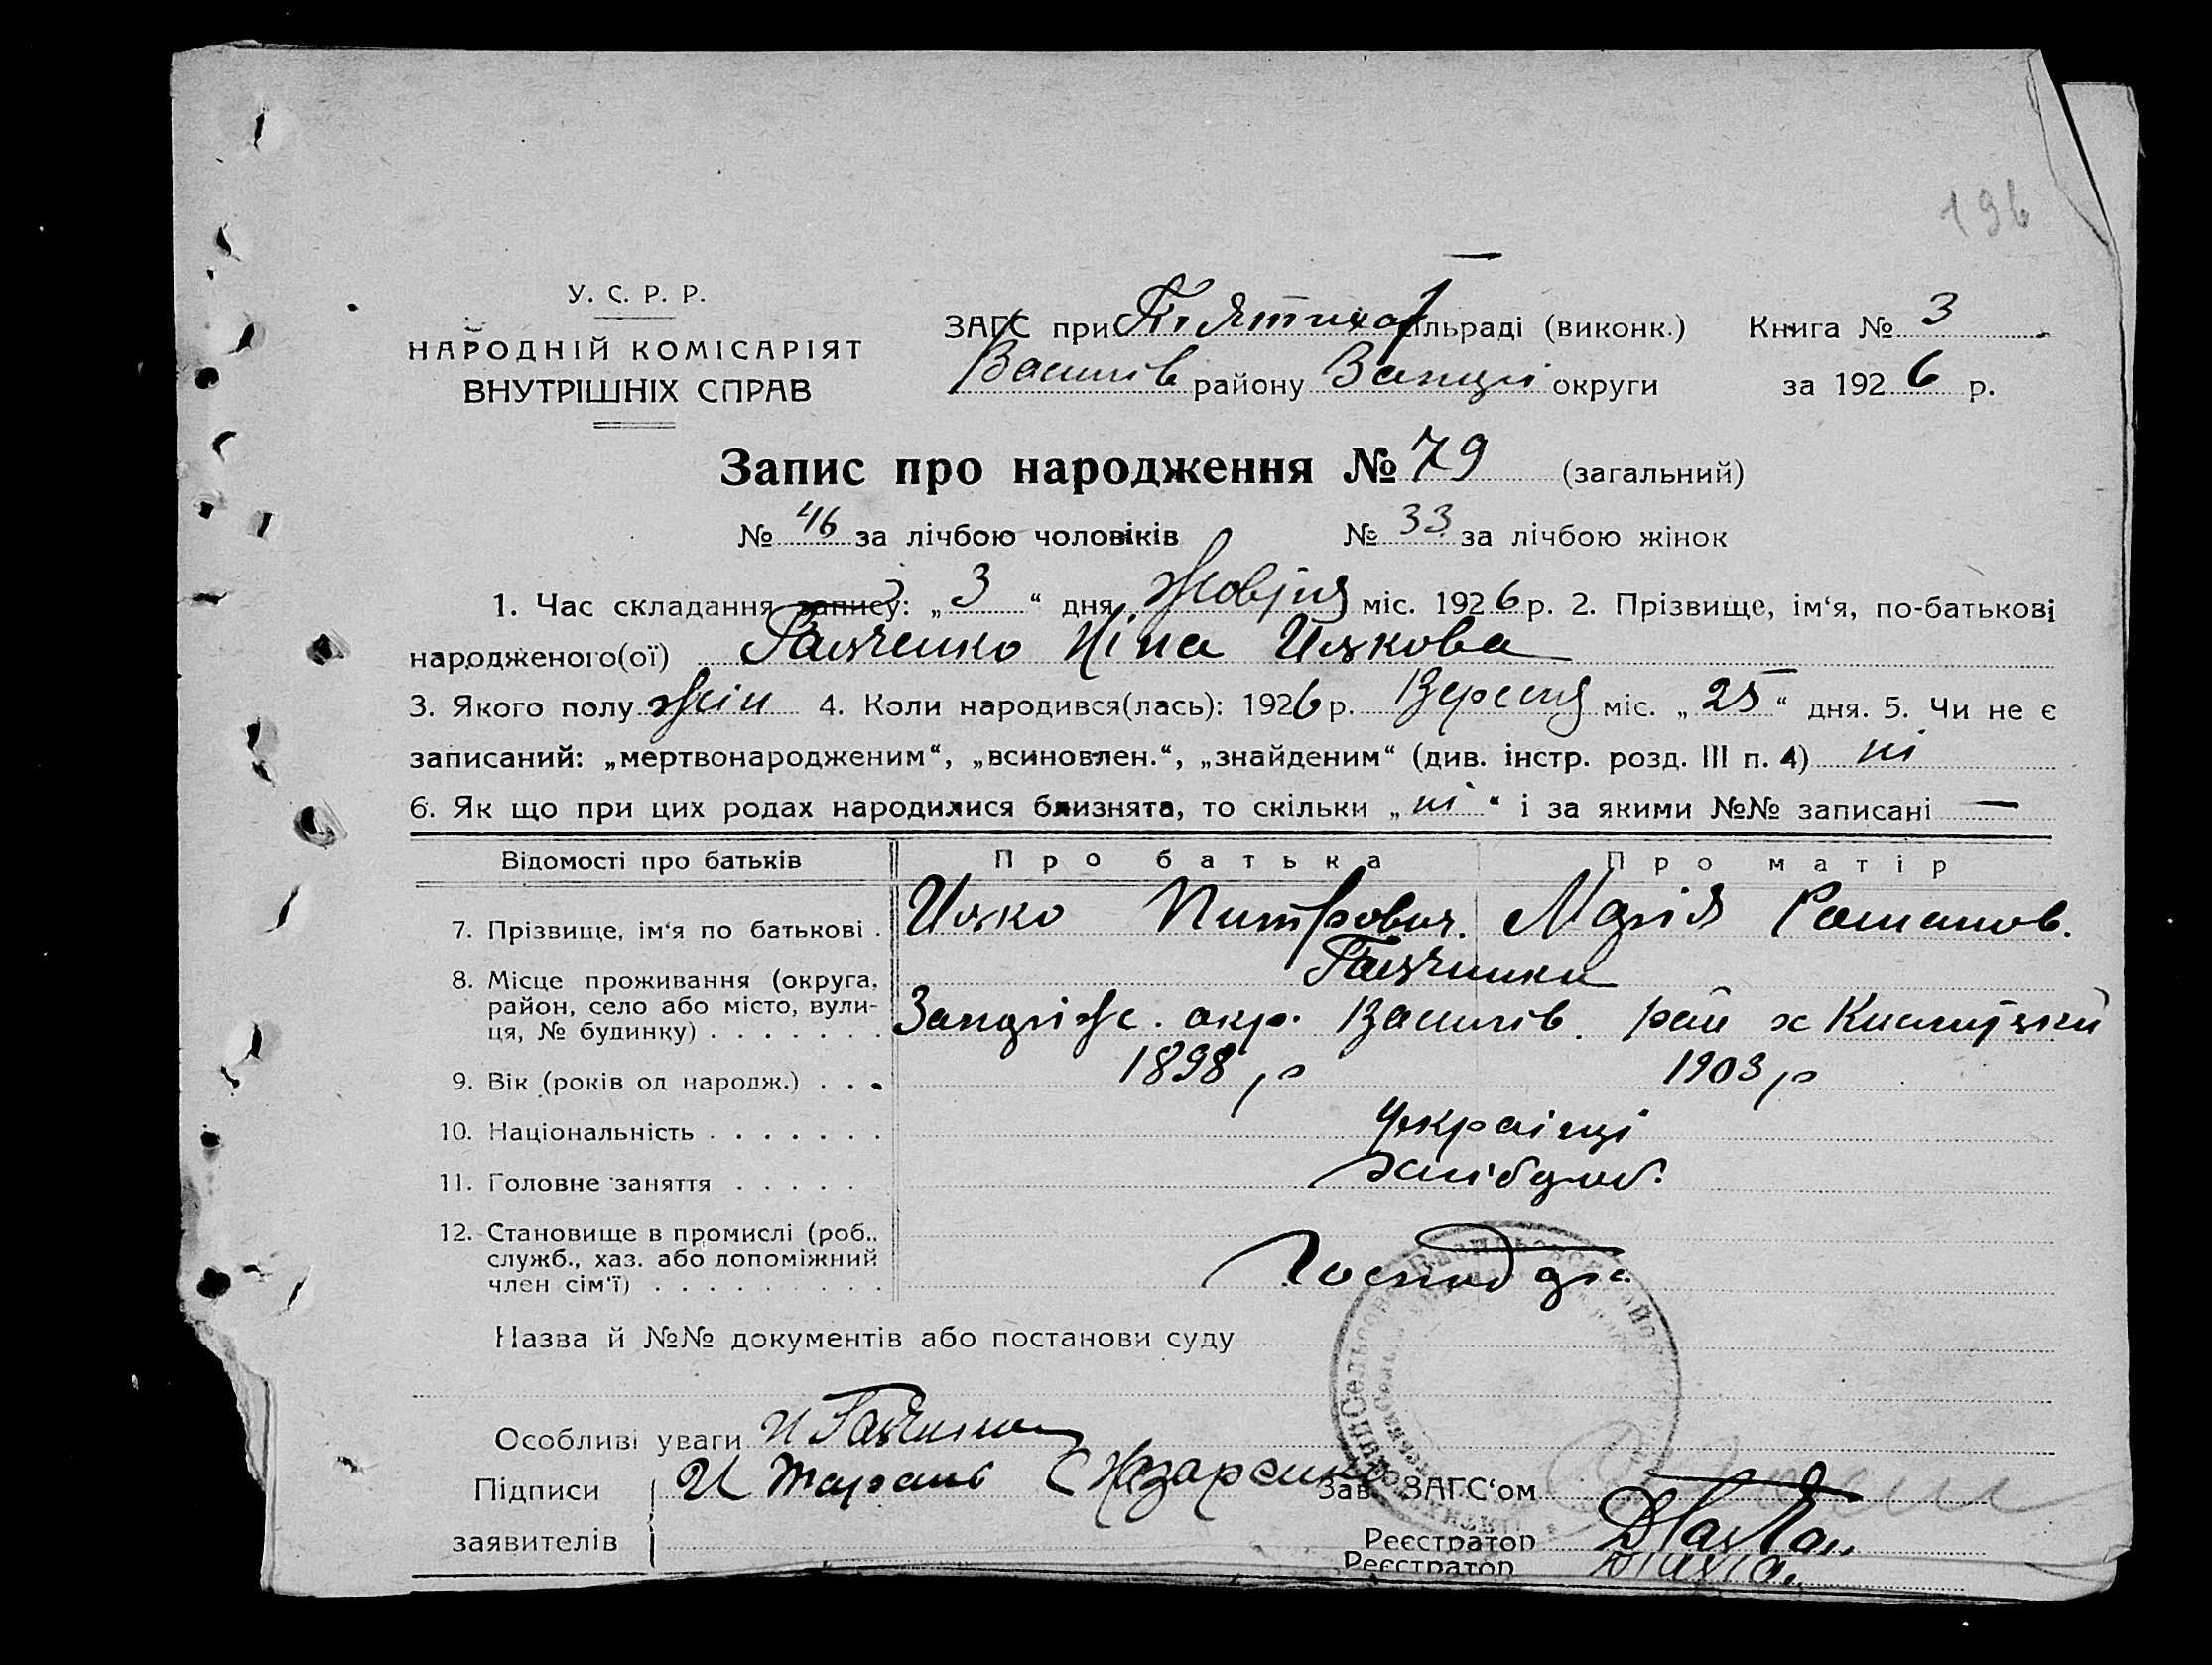 196
У. С. Р. Р.
НАРОДНІЙ КОМІСАРІЯТ
ВНУТРІШНІХ СПРАВ
ЗАГС при Пʼятихат сільраді (виконк.) Книга № 3
Василів району Запорі округи за 1926 р.
Запис про народження № 79 (загальний)
№ 46 за лічбою чоловіків № 33 за лічбою жінок
1. Час складання запису: „3“ дня Жовтня міс. 1926 р. 2. Прізвище, ім‘я, по-батькові
народженого(ої) Ніна
3. Якого полу жін 4. Коли народився(лась): 1926 р. Вересня міс. „25“ дня. 5. Чи не є
записаний: „мертвонародженим“, „всиновлен.“, „знайденим“ (див. інстр. розд. III п. 4) ні
6. Як що при цих родах народилися близнята, то скільки „ні“ і за якими №№ записані —
Відомості про батьків Про батька Про матір
7. Прізвище, ім‘я по батькові . Марія Романов.
8. Місце проживання (округа,
район, село або місто, вули-
ця, № будинку) . . . . . . . Запоріж. окр. Василів. рай х
9. Вік (років од народж.) . . . 1898 р 1903 р
10. Національність . . . . . . . Українці
11. Головне заняття . . . . . Хлібороб.
12. Становище в промислі (роб.,
служб., хаз. або допоміжний
член сім‘ї) . . . . . . . . .
Назва й №№ документів або постанови суду
Особливі уваги
Підписи И Тарань С Назаренко Зав. ЗАГС‘ом
заявителів Реєстратор
Реєстратор